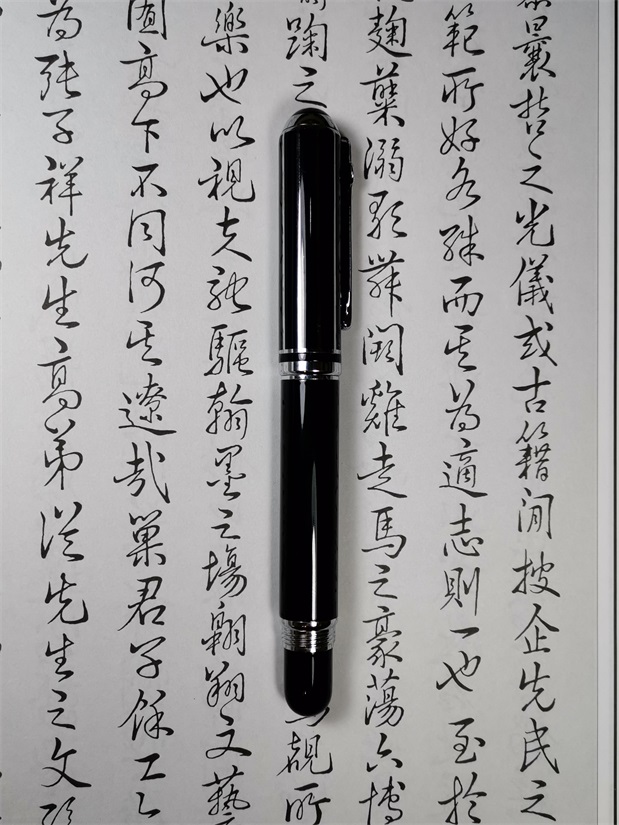 曩哲之光儀或古籍閒披企先民之
範所好各殊而其為適志則一也至於
麹糵溺歌舞鬬雞走馬之豪蕩六博
踘之 所
樂也以視夫馳驅翰墨之場翱翔文藝
固高下不同何其遼哉巢君子餘工
為張子祥先生高弟從先生之文